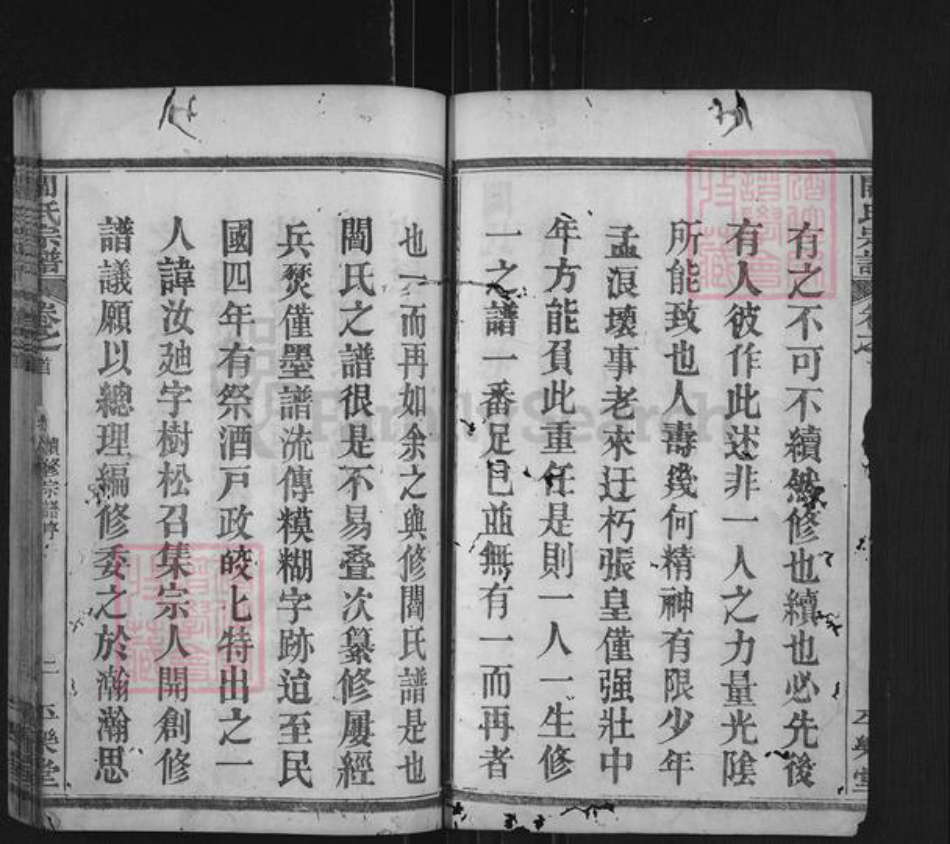 有之不可不續然修也續也必先後
有人彼作此述非一人之力量光陰
所能致也人壽幾何精神有限少年
孟浪壞事老來迂朽張皇僅强壯中
年方能負此重任是則一人一生修
一之譜一番足已並無有一而再者
也一而再如余之與修閻氏譜是也
閻氏之譜很是不易叠次纂修屢經
兵燹僅墨譜流傳糢糊字跡迨至民
國四年有祭酒戶政皎七特出之一
人諱汝廸字樹松召集宗人開創修
譜議願以總理編修委之於瀚瀚思
閻氏宗譜
卷之首
續修宗譜序
二
FamilySearch